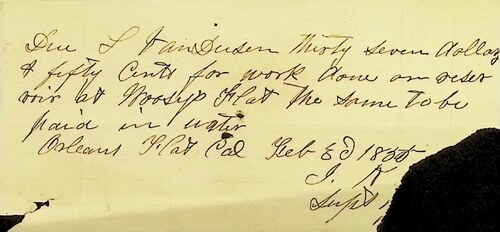 Due L VanDusen thirty seven dollars
& fifty Cents for work done on reser
voir at Woosup Flat the same to be
paid in water
Orleans Flat Cal Feb 3d 1855
J. K
Supt